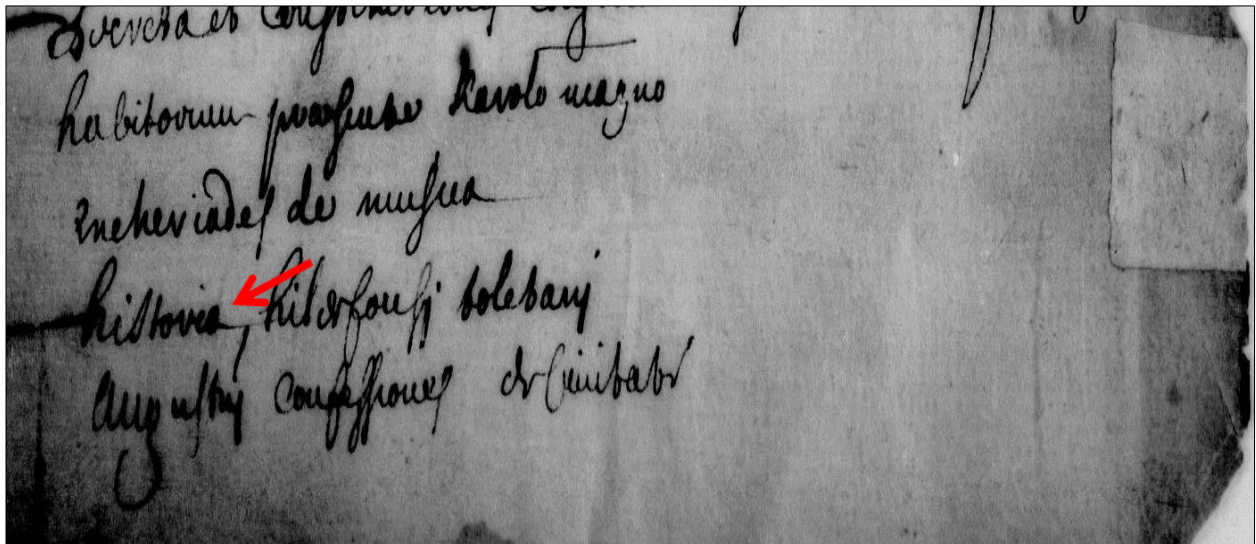 Decreta et
habitorum praesente Karolo magno
Encheriades de musica
historia, hildefonsi toletani
Augustini Confessiones de Civitate